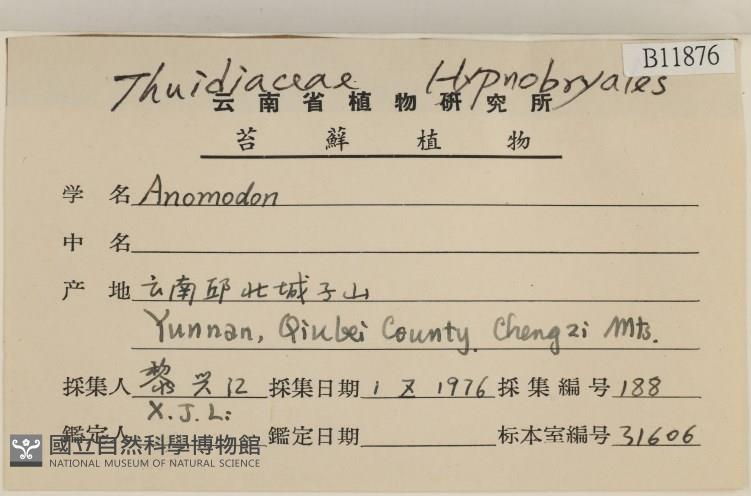 B11876
Thuidiaceae Hypnobryales
云南省植物研究所
苔蘚植物
学名 Anomodon
中名
产地 云南邱北城子山
Yunnan, Qiubei County. Chengzi Mts.
採集人 黎兴江 採集日期 1 X 1976 採集編号 188
X.J.Li
鑑定人 鑑定日期 标本室編号 31606
國立自然科學博物館
NATIONAL MUSEUM OF NATURAL SCIENCE